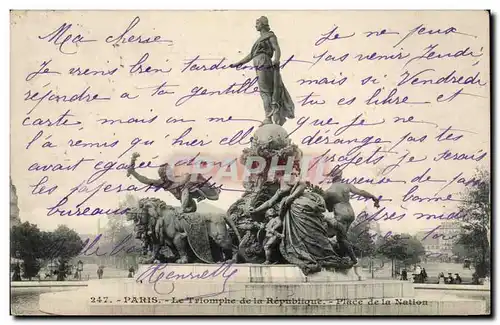 Ma chérie
Je viens bien tardivement
répondre à ta gentille
carte, mais on me
l'a remis qu'hier elle
avait
les de
bureau
Je ne peux
pas venir Jeudi
mais si Vendredi
tu es libre et
que je ne
dérange pas tes
projets je serais
heureuse de
bonne
après midi
Henriette
247. - PARIS. - Le Triomphe de la République. - Place de la Nation